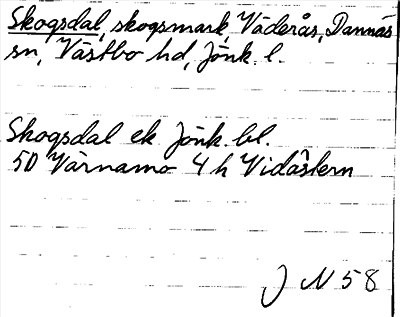 Skogsdal, skogsmark, Väderås, Dannäs
sn, Västbo hd, Jönk. l.
Skogsdal ek Jönk. bl.
5D Värnamo 4 h Vidöstern
J N 58